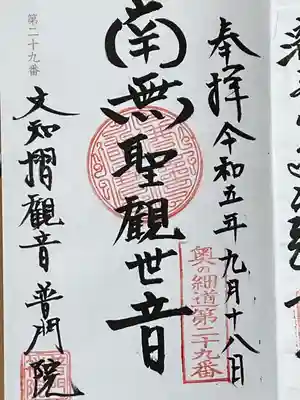 奉拝 令和五年九月十八日
奥の細道第二十九番
南無聖觀世音
第二十九番
文知摺觀音 普門院